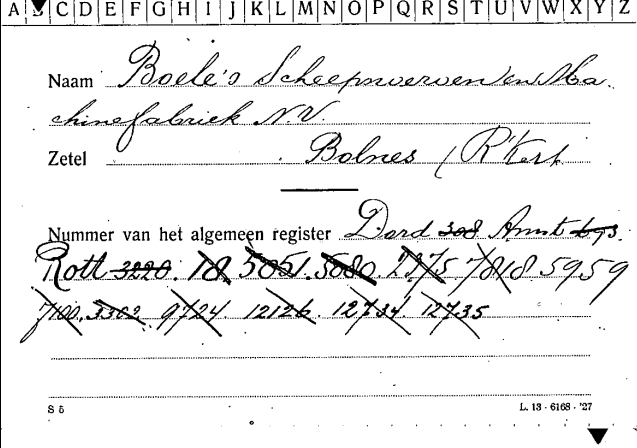 A B C D E F G H I J K L M N O P Q R S T U V W X Y Z
Naam Boele's Scheepswerven en Ma
chinefabriek N.V.
Zetel Bolnes / R'Kerk
Nummer van het algemeen register Dord 308 Amst 693
Rott 3220. 18 5051. 5680. 2375 7818 5959
7100. 3302. 9724. 12126. 12734. 12735
S 5 L. 13 - 6168 - '27